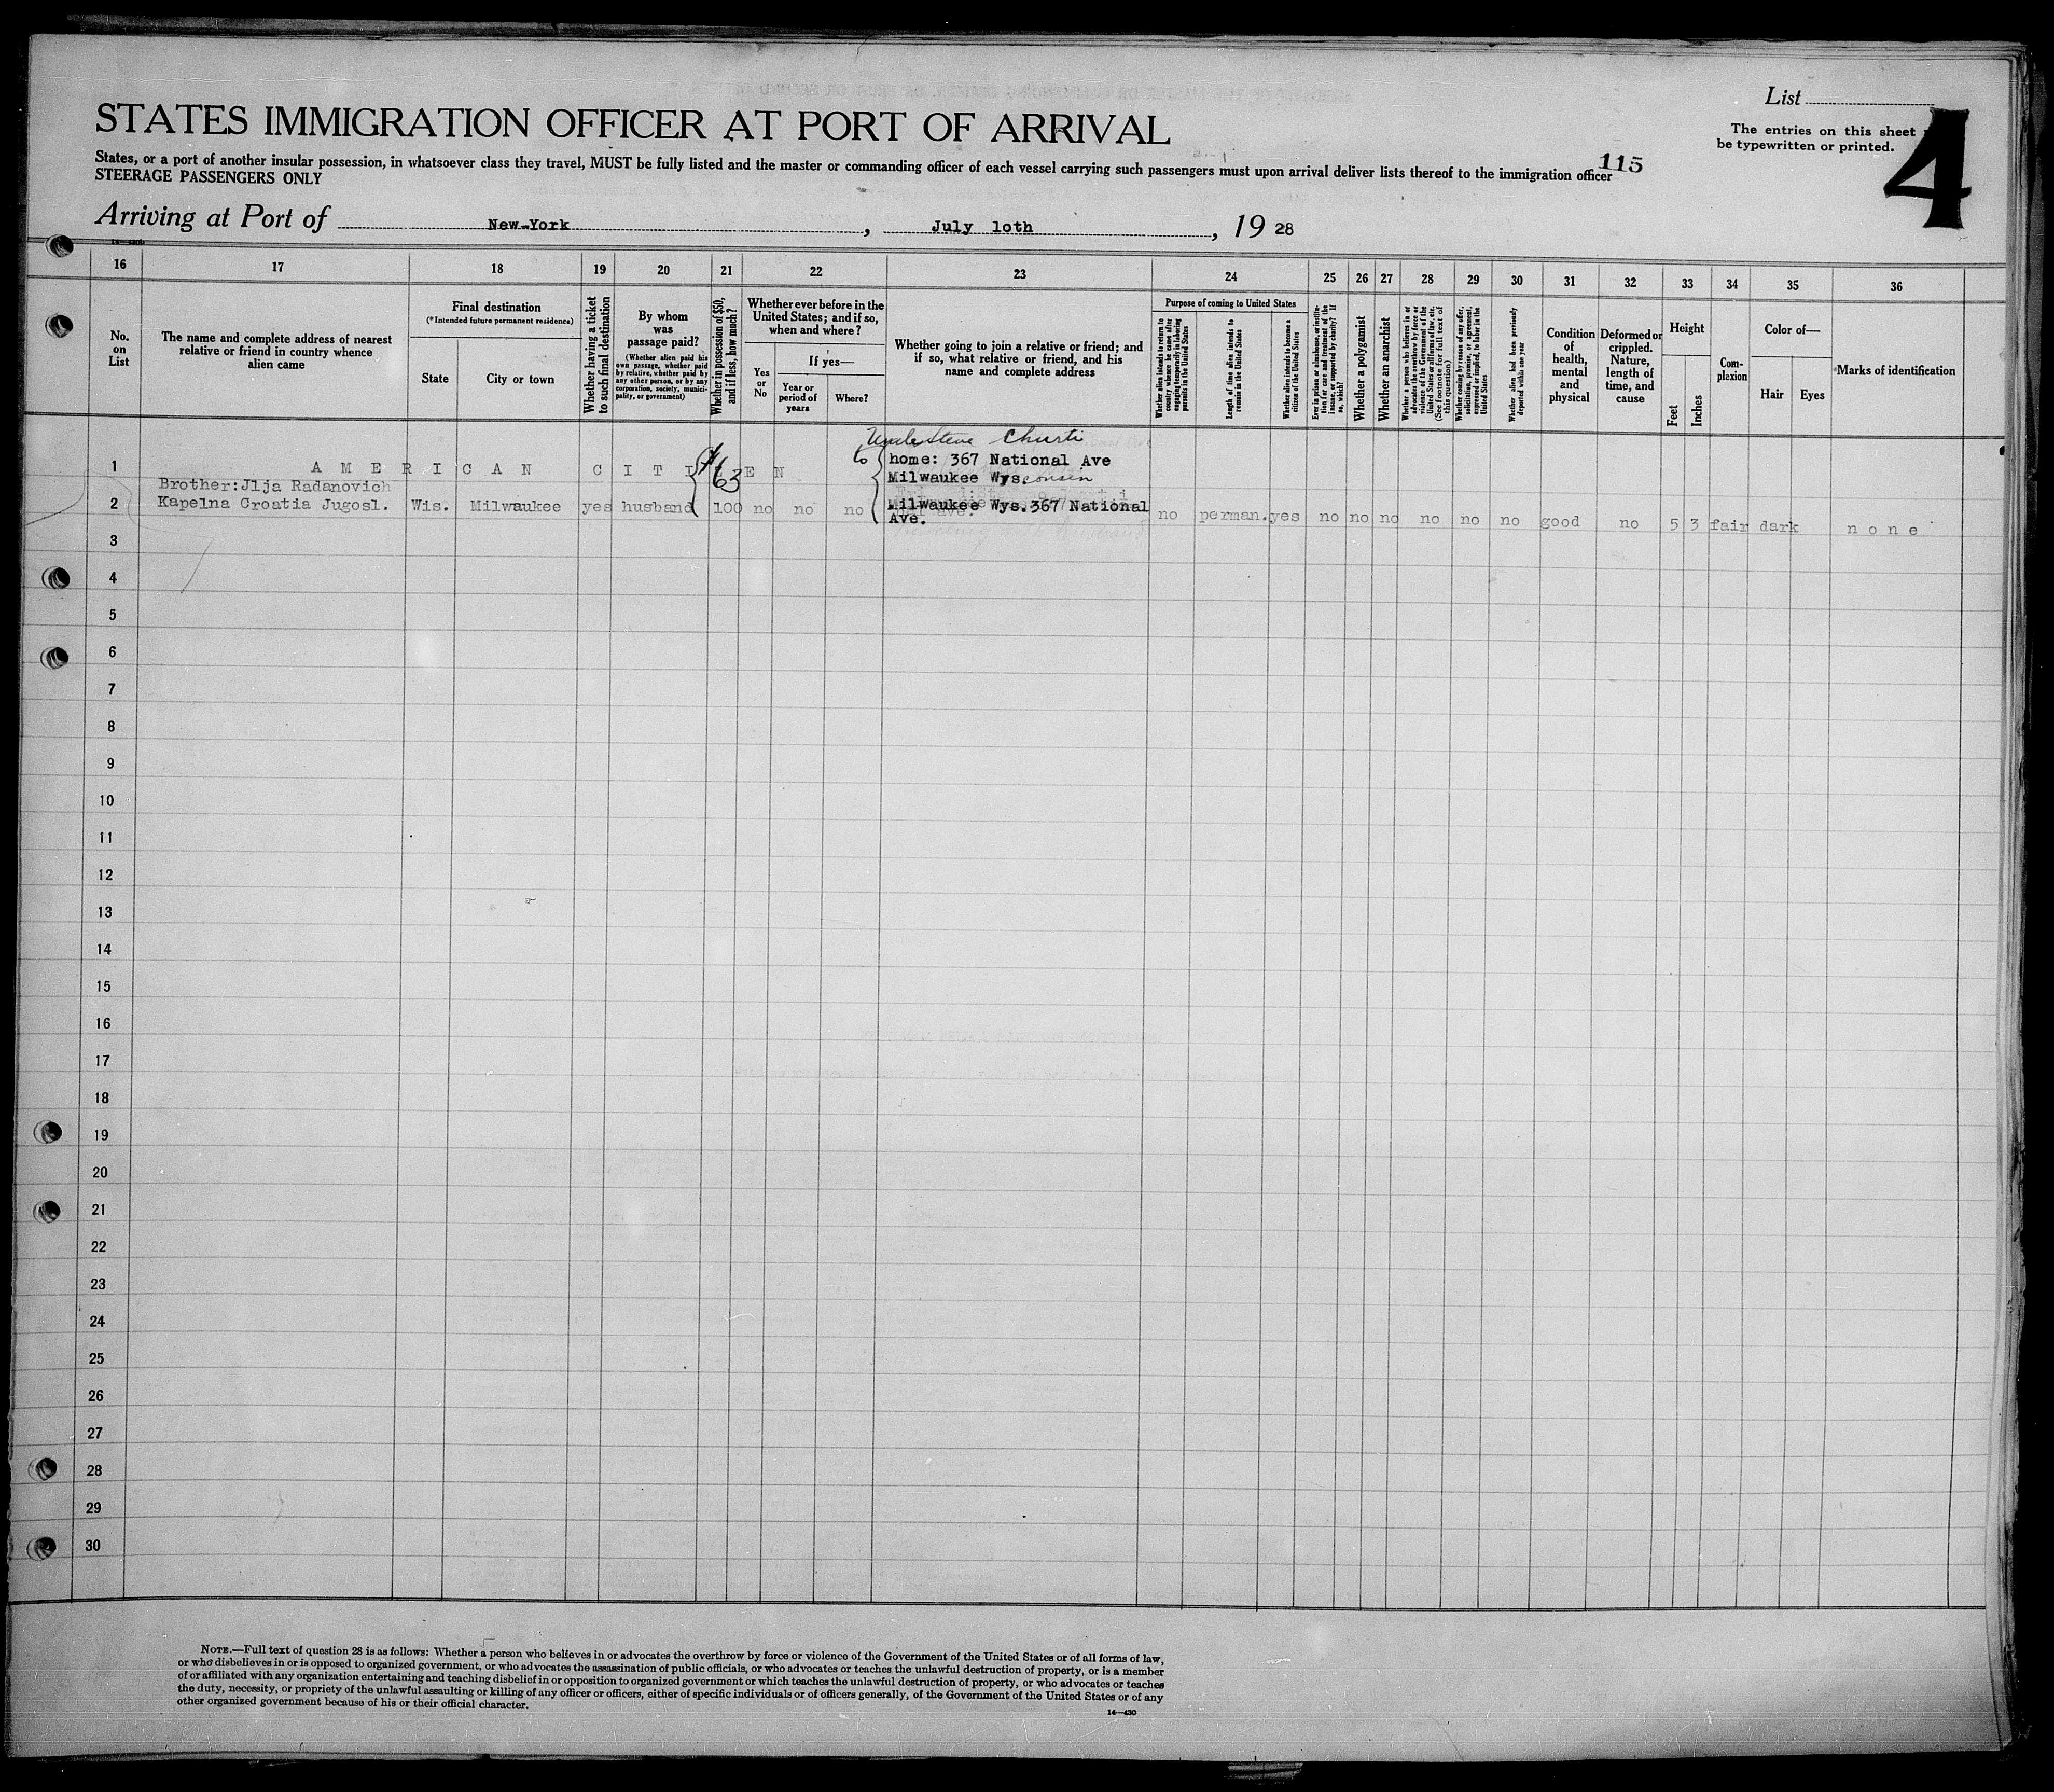 List
The entries on this sheet
be typewritten or printed.
4
STATES IMMIGRATION OFFICER AT PORT OF ARRIVAL
115
States, or a port of another insular possession, in whatsoever class they travel, MUST be fully listed and the master or commanding officer of each vessel carrying such passengers must upon arrival deliver lists thereof to the immigration officer
STEERAGE PASSENGERS ONLY
Arriving at Port of New-York, July 1oth, 19 28
16 17 18 19 20 21 22 23 24 25 26 27 28 29 30 31 32 33 34 35 36
No. on List
The name and complete address of nearest relative or friend in country whence alien came
Final destination
(*Intended future permanent residence)
State
City or town
Whether having a ticket to such final destination
By whom was passage paid?
(Whether alien paid his own passage, whether paid by relative, whether paid by any other person, or by any corporation, society, municipality, or government)
Whether in possession of $50, and if less, how much?
Whether ever before in the United States; and if so, when and where?
Yes or No
If yes—
Year or period of years
Where?
Whether going to join a relative or friend; and if so, what relative or friend, and his name and complete address
Purpose of coming to United States
Whether alien intends to return to country whence he came after engaging temporarily in laboring pursuits in the United States
Length of time alien intends to remain in the United States
Whether alien intends to become a citizen of the United States
Ever in prison or almshouse, or institution for care and treatment of the insane, or supported by charity? If so, which?
Whether a polygamist
Whether an anarchist
Whether a person who believes in or advocates the overthrow by force or violence of the Government of the United States or all forms of law, etc. (See footnote for full text of this question)
Whether coming by reason of any offer, solicitation, promise, or agreement, expressed or implied, to labor in the United States
Whether alien had been previously deported within one year
Condition of health, mental and physical
Deformed or crippled. Nature, length of time, and cause
Height
Feet
Inches
Complexion
Color of—
Hair
Eyes
Marks of identification
Uncle Steve Churti
1 AMERICAN CITIZEN $63 to home: 367 National Ave
Milwaukee Wysconsin
Brother:Jlja Radanovich
2 Kapelna Croatia Jugosl. Wis. Milwaukee yes husband 100 no no no Milwaukee Wys.367 National
Ave. no perman. yes no no no no no no good no 5 3 fair dark none
3
4
5
6
7
8
9
10
11
12
13
14
15
16
17
18
19
20
21
22
23
24
25
26
27
28
29
30
NOTE.—Full text of question 28 is as follows: Whether a person who believes in or advocates the overthrow by force or violence of the Government of the United States or of all forms of law,
or who disbelieves in or is opposed to organized government, or who advocates the assassination of public officials, or who advocates or teaches the unlawful destruction of property, or is a member
of or affiliated with any organization entertaining and teaching disbelief in or opposition to organized government or which teaches the unlawful destruction of property, or who advocates or teaches
the duty, necessity, or propriety of the unlawful assaulting or killing of any officer or officers, either of specific individuals or of officers generally, of the Government of the United States or of any
other organized government because of his or their official character.
14—430